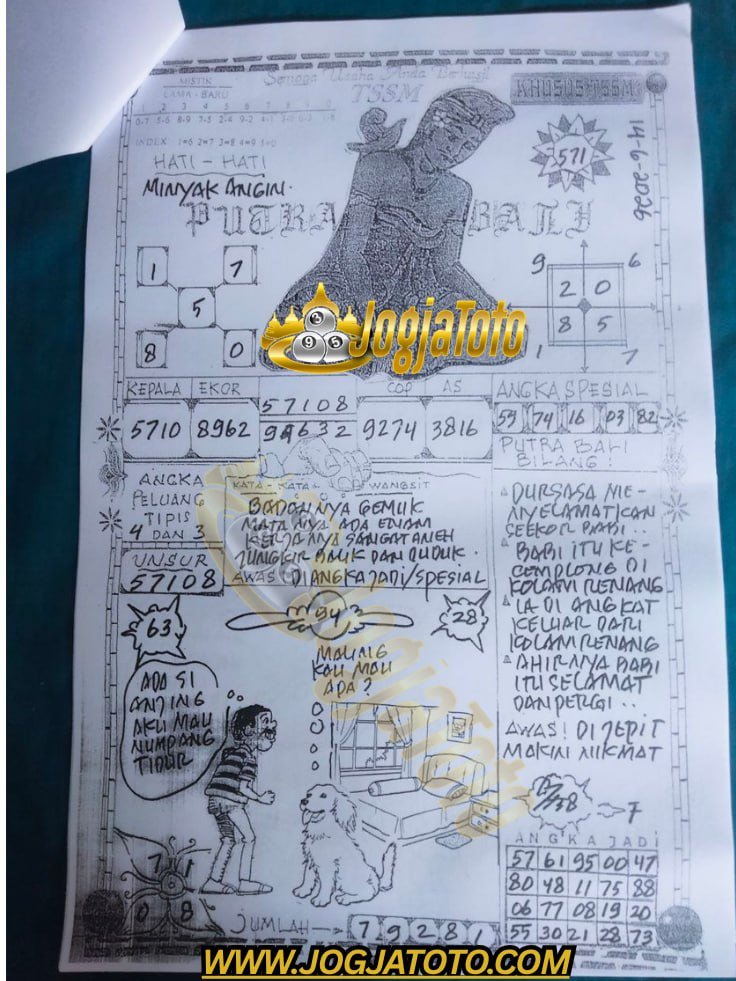 Semoga Usaha Anda Berhasil
MISTIK
LAMA - BARU
1 2 3 4 5 6 7 8 9 0
0-7 5-6 8-9 3-5 2-4 9-2
INDEX 1=6 2=7 3=8 4=9 5=0
TSSM
KHUSUS TSSM
571
14-6-2026
HATI - HATI
MINYAK ANGIN.
PUTRA BALI
1 7
5
8 0
9 6
2 0
8 5
1 7
JogjaToto
KEPALA EKOR
5710 8962
57108
COP AS
9274 3816
ANGKA SPESIAL
59 74 16 03 82
PUTRA BALI
BILANG :
ANGKA
PELUANG
TIPIS
4 DAN 3
UNSUR
57108
KATA - KATA WANGSIT
BADANNYA GEMUK
MATANYA ADA ENAM
KERJANYA SANGAT ANEH
JUNGKIR BALIK DAN DUDUK.
AWAS! DIANGKA JADI/SPESIAL
DURSASA ME-
NYELAMATKAN
SEEKOR BABI..
BABI ITU KE-
CEMPLONG DI
KOLAM RENANG
IA DI ANGKAT
KELUAR DARI
KOLAM RENANG
AHIRNYA BABI
ITU SELAMAT
DAN PERGI..
AWAS! DIJEPIT
MAKIN NIKMAT
63
94
28
MALING
KAU MAU
APA?
ADA SI
ANJING
AKU MAU
NUMPANG
TIDUR
JogjaToto
7
ANGKA JADI
57 61 95 00 47
80 48 11 75 88
06 77 08 19 20
55 30 21 28 73
7 1
0 8
JUMLAH 7 9 2 8 1
WWW.JOGJATOTO.COM